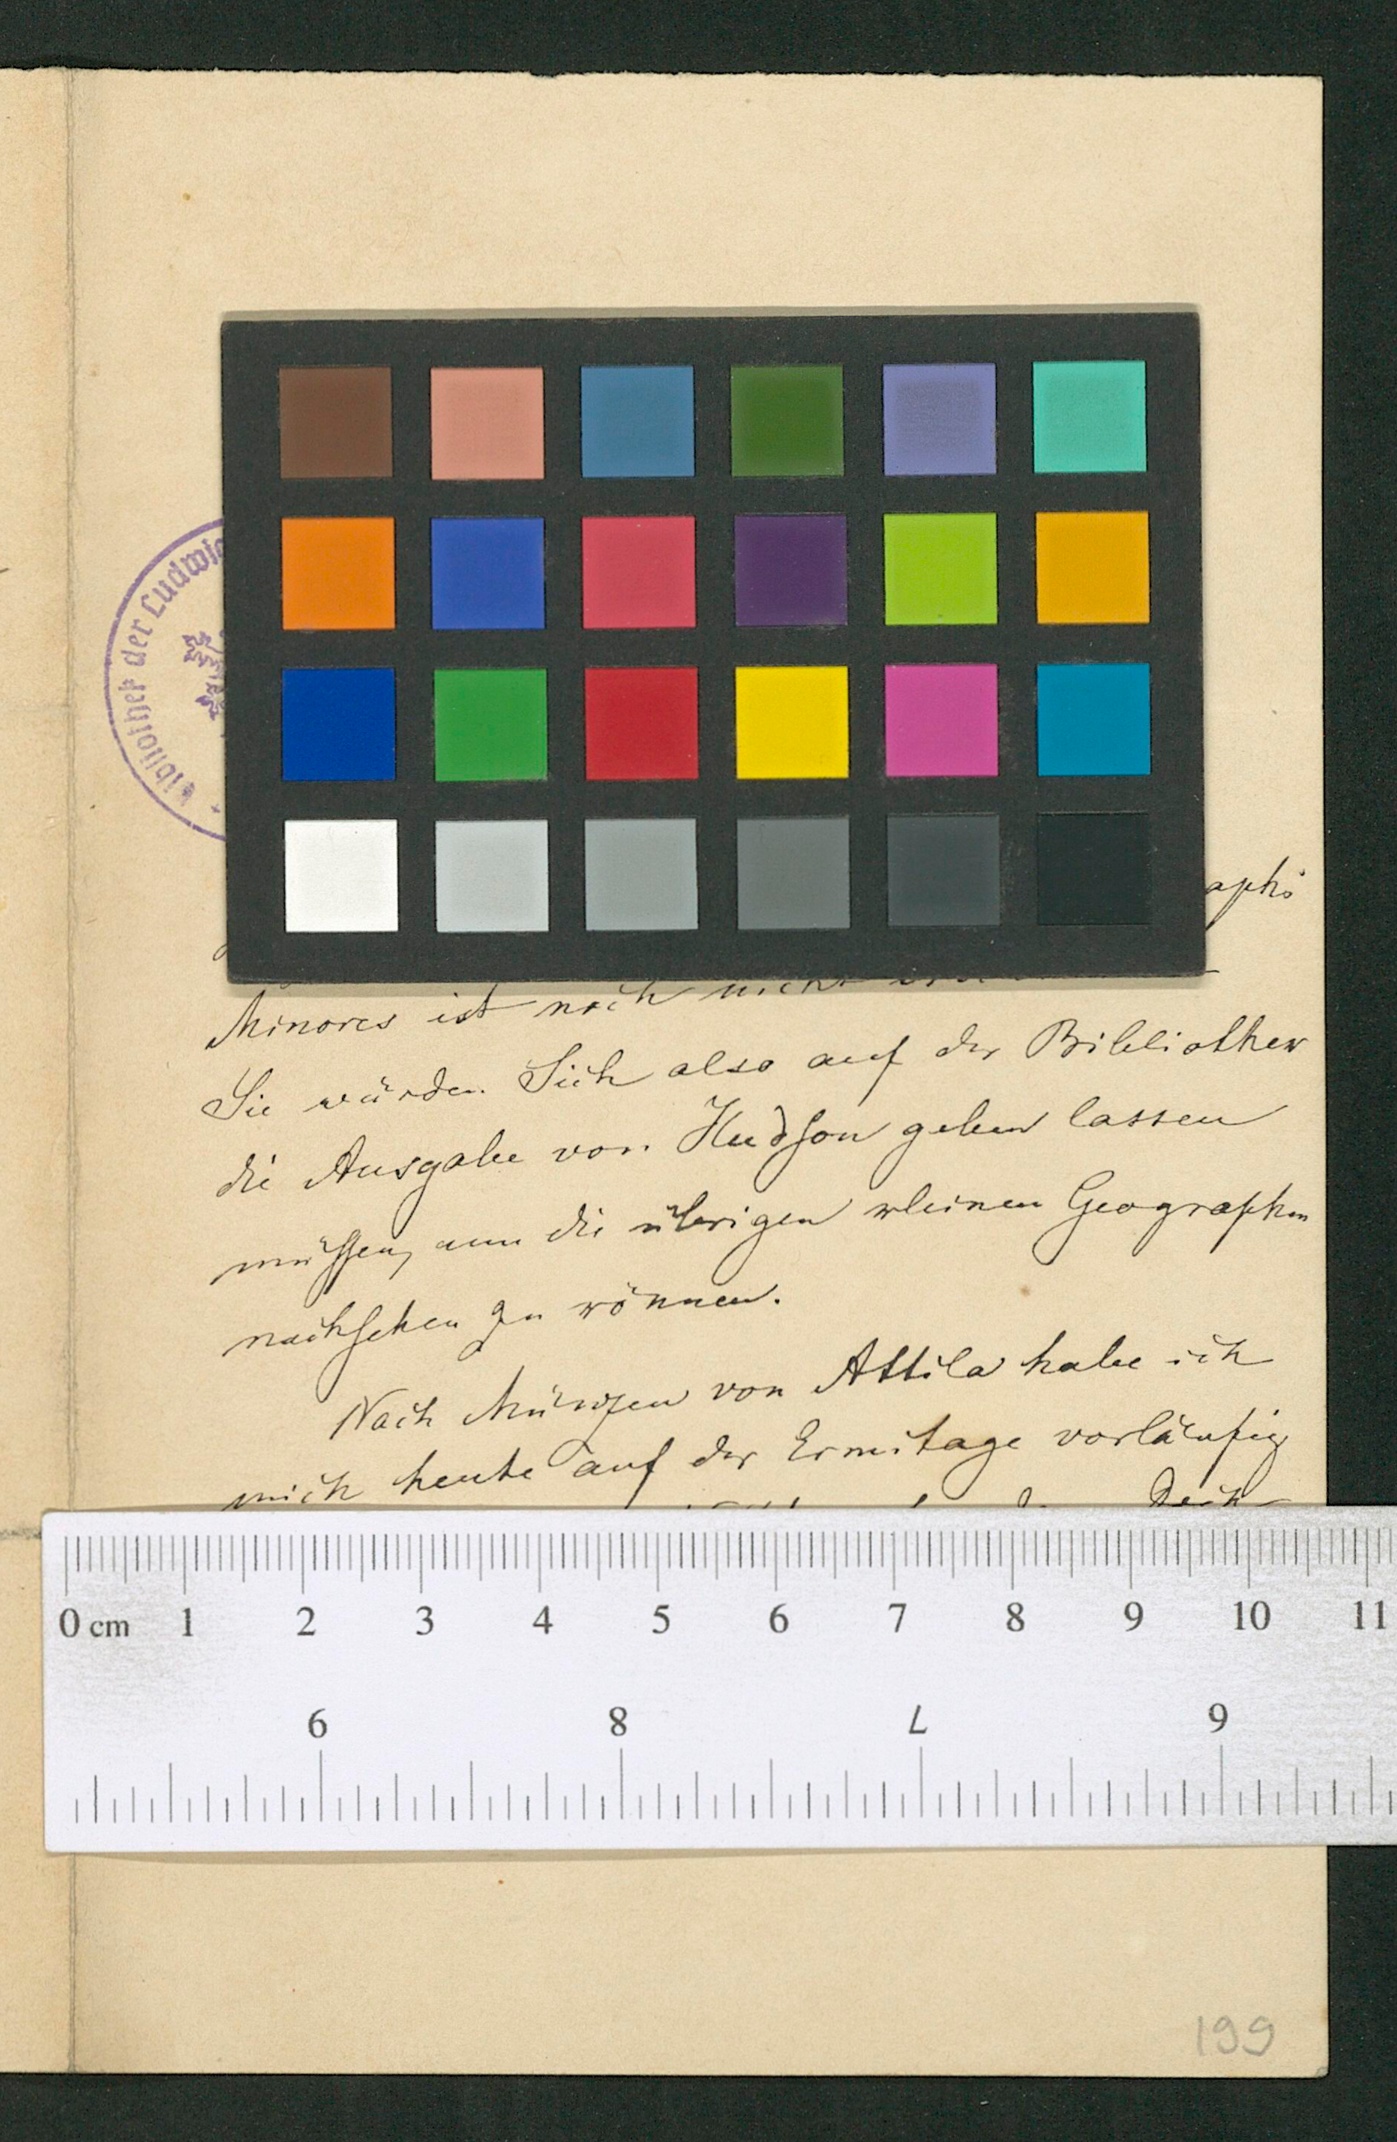 Bibliothek der Ludwig
aphi
Minores ist noch nicht
Sie würden Sich also auf der Bibliothek
die Ausgabe von Hudson geben lassen
müssen, um die übrigen kleinen Geographen
nachsehen zu können.
Nach Münzen von Attila habe ich
mich heute auf der Ermitage vorläufig
0 cm 1 2 3 4 5 6 7 8 9 10 11
9 8 7 6
199